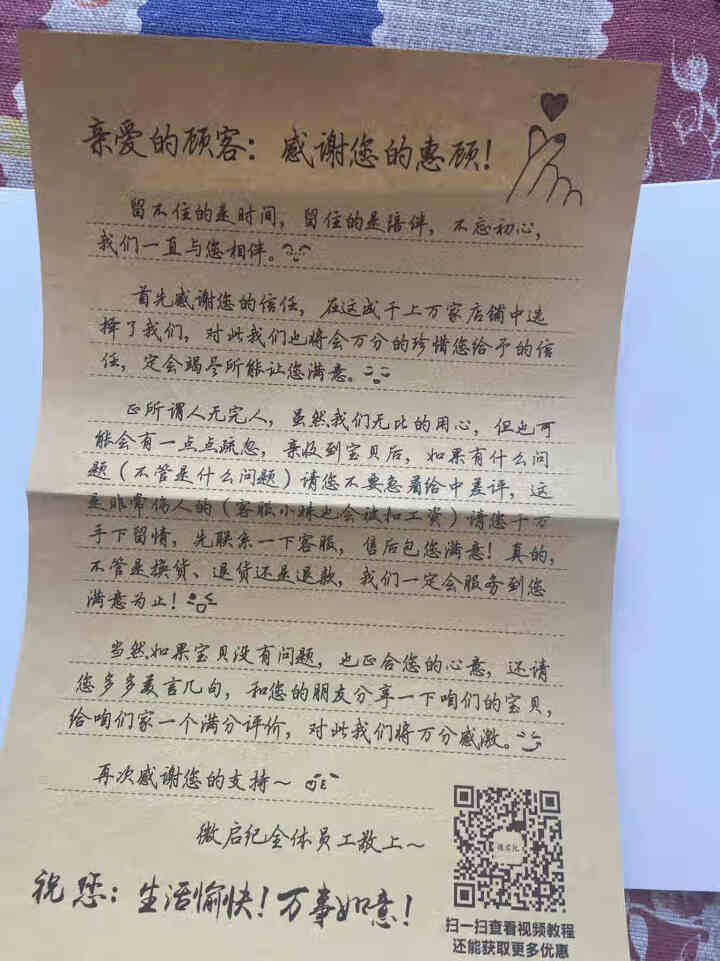 亲爱的顾客：感谢您的惠顾！
留不住的是时间，留住的是陪伴，不忘初心，
我们一直与您相伴。
首先感谢您的信任，在这成千上万家店铺中选
择了我们，对此我们也将会万分的珍惜您给予的信
任，定会竭尽所能让您满意。
正所谓人无完人，虽然我们无比的用心，但也可
能会有一点点疏忽，亲收到宝贝后，如果有什么问
题（不管是什么问题）请您不要急着给中差评，这
是非常伤人的（客服小妹也会被扣工资）请您千万
手下留情，先联系一下客服，售后包您满意！真的，
不管是换货、退货还是退款，我们一定会服务到您
满意为止！
当然如果宝贝没有问题，也正合您的心意，还请
您多多美言几句，和您的朋友分享一下咱们的宝贝，
给咱们家一个满分评价，对此我们将万分感激。
再次感谢您的支持～
微启纪全体员工敬上～
祝您：生活愉快！万事如意！
扫一扫查看视频教程
还能获取更多优惠